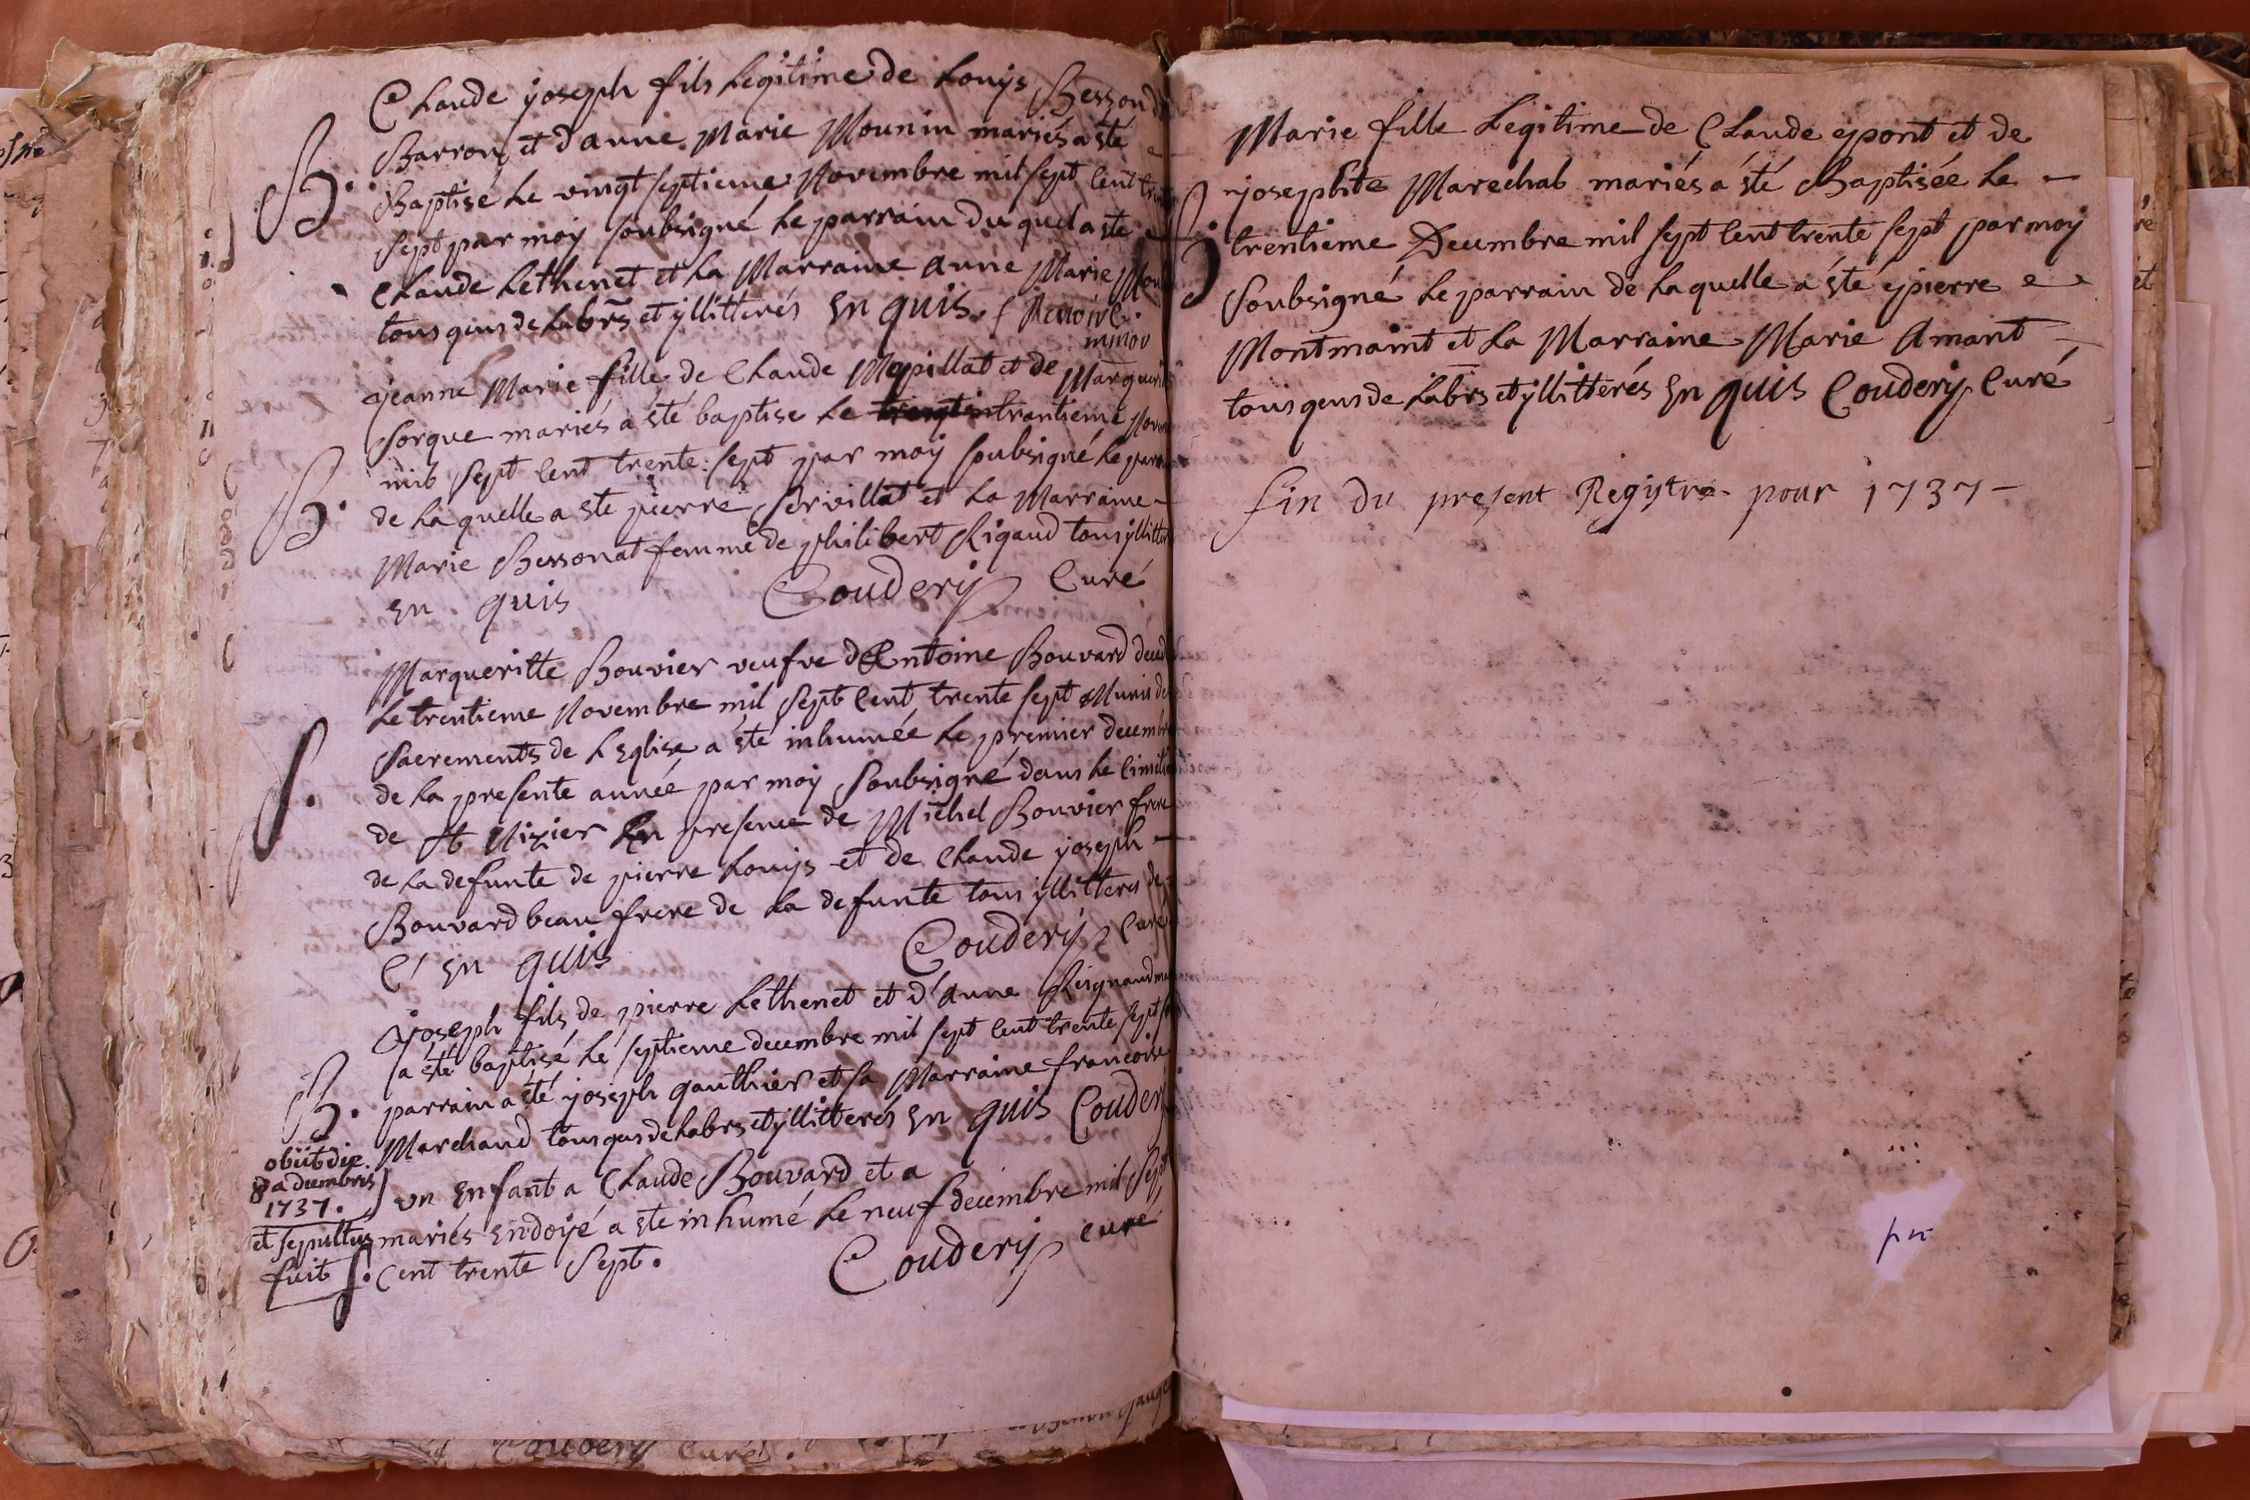 Claude yoseph fils Legitime de Louys Besson
Barron et d'anne Marie Mounin mariés a sté
B. Baptisé Le vingt septieme Novembre mil sept Cent
sept par moy soubsigné Le parrain du quel a sté
Claude Lethenet et La Marraine Anne Marie
tous gens de Labrs et yllitterés En quis.
minov
yeanne Marie fille de Claude Mopillat et de
Sorque mariés a sté baptise Le trantieme
B. mil sept Cent trente sept par moy soubsigné Le
de La quelle a ste pierre Servillat et La Marraine
Marie Bessonat femme de philibert Rigaud tous
En quis Coudery Curé
Marqueritte Bouvier veufve d'Entoine Bouvard
Le trentieme Novembre mil sept Cent trente sept Munis
Sacrements de L'Eglise a ésté inhumée Le premier decembre
S. de La presente année par moy Soubsigné dans Le
de St Nizier En presence de Michel Bouvier frere
de La defunte de pierre Louys et de Claude yoseph
Bouvard beau frere de La defunte tous yllitteres de
C' En quis Coudery Curé
yoseph fils de pierre Lethenet et d'Anne
a ésté baptisé Le septieme decembre mil sept Cent trente sept
B. parrain a ésté yoseph gauthier et la Marraine francoise
Marchand tous gens de Labrs et yllitterés En quis Coudery
obiit die
8a decembris
1737.
et sepultus
fuit
un Enfant a Claude Bouvard et a
mariés Endoÿé a ste inhumé Le neuf decembre mil Sept
S. Cent trente Sept. Coudery curé
Coudery Curé.
Marie fille Legitime de Claude ypont et de
yosephte Marechal mariés a ésté Baptisée Le
B. trentieme Decembre mil sept Cent trente sept par moy
Soubsigné Le parrain de La quelle a ésté pierre
Montmaint et La Marraine Marie Amant
tous gens de Labrs et yllitterés En quis Coudery Curé
fin du present Registre pour 1737